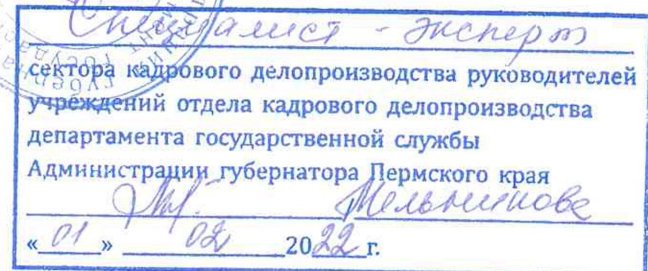 Специалист - эксперт
сектора кадрового делопроизводства руководителей
учреждений отдела кадрового делопроизводства
департамента государственной службы
Администрации губернатора Пермского края
Мельникова
«01» 02 2022 г.